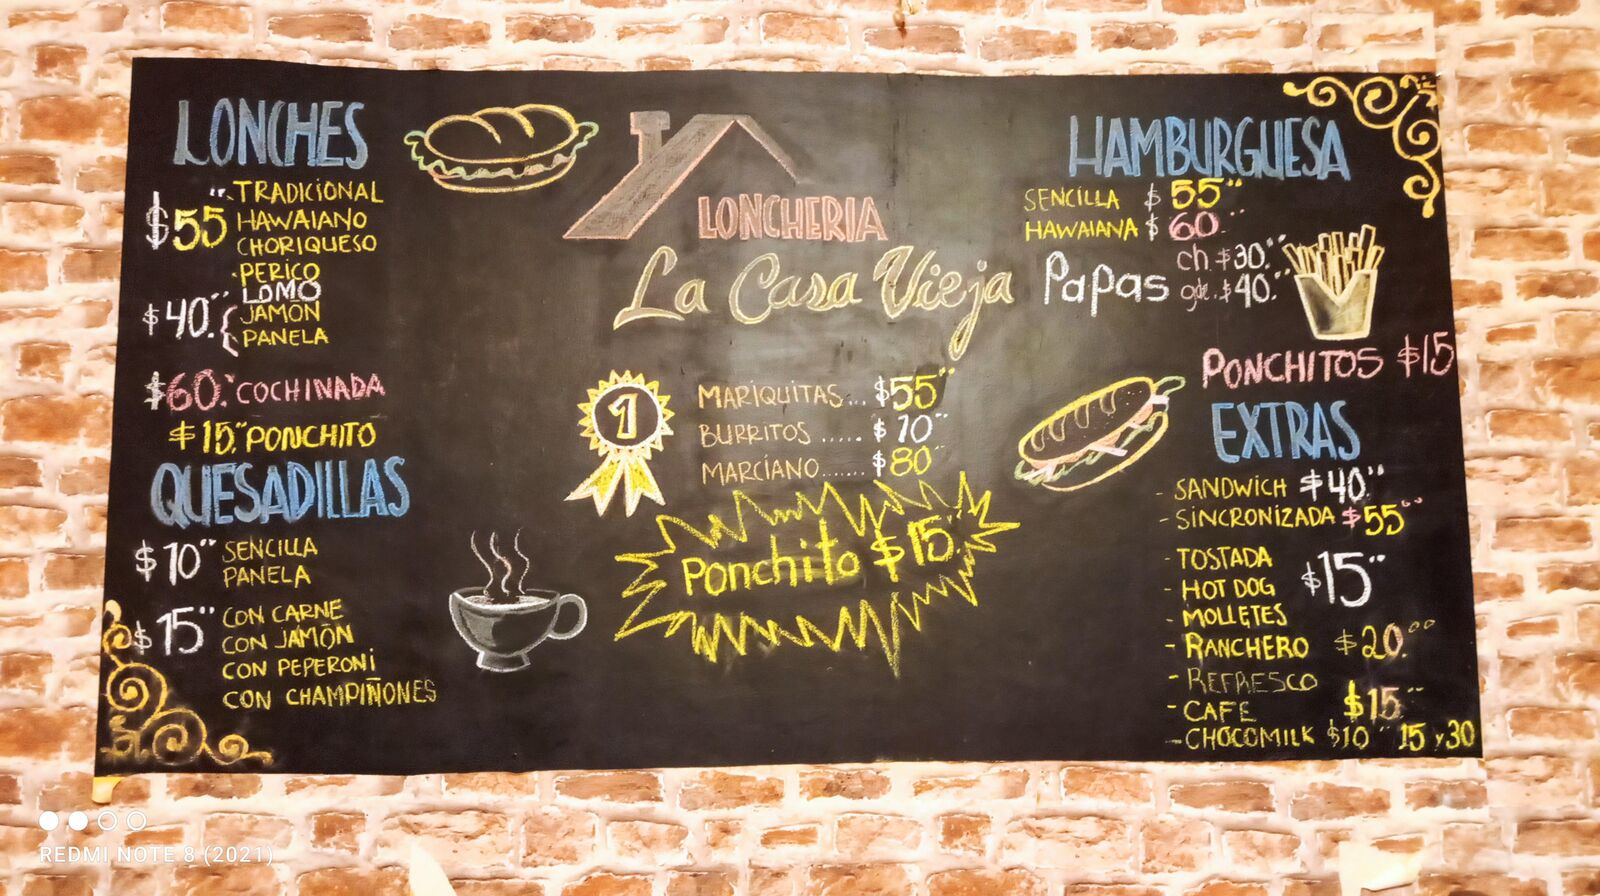 LONCHES
$55°° TRADICIONAL
HAWAIANO
CHORIQUESO
PERICO
LOMO
$40.°° JAMÓN
PANELA
$60.°° COCHINADA
$15.°° PONCHITO
QUESADILLAS
$10°° SENCILLA
PANELA
$15°° CON CARNE
CON JAMÓN
CON PEPERONi
CON CHAMPIÑONES
LONCHERIA
La Casa Vieja
1
MARIQUITAS... $55°°
BURRITOS ..... $10°°
MARCIANO....... $80°°
Ponchito $15°°
HAMBURGUESA
SENCILLA $55°°
HAWAIANA $60°°
Papas ch. $30°°
gde. $40.°°
PONCHITOS $15
EXTRAS
- SANDWICH $40°°
- SINCRONIZADA $55°°
- TOSTADA
- HOT DOG $15°°
- MOLLETES
- RANCHERO $20.°°
- REFRESCO
- CAFE $15°°
- CHOCOMILK $10°° 15 y 30
REDMI NOTE 8 (2021)